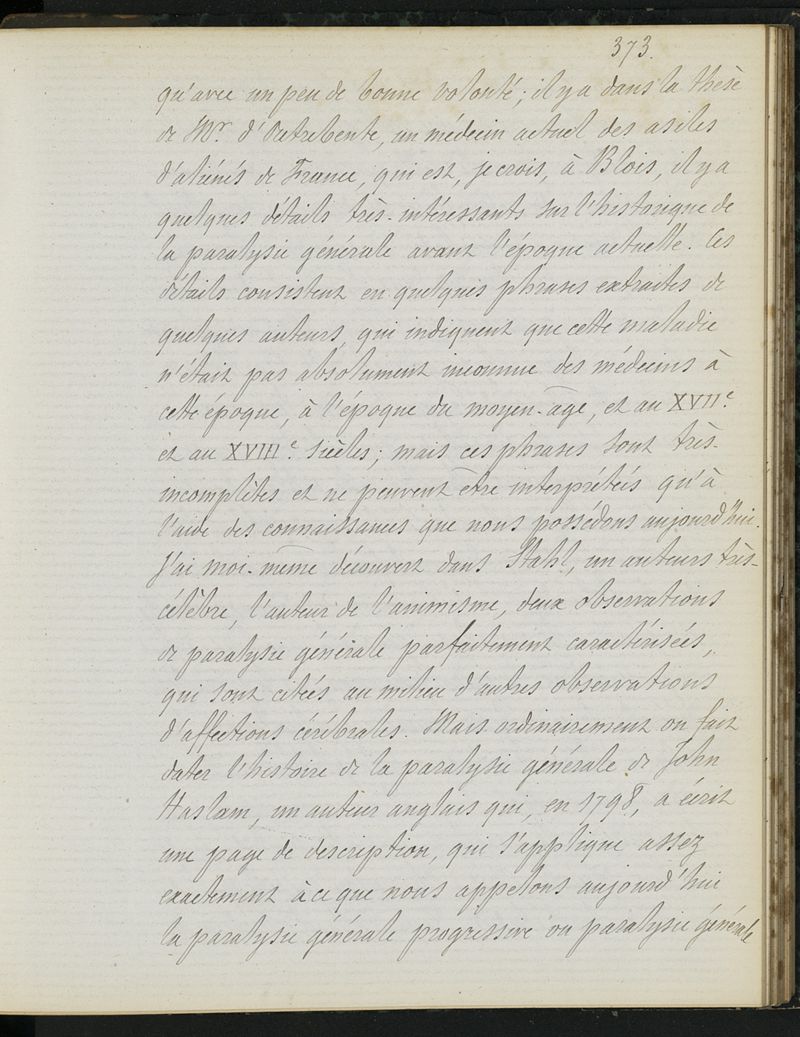 373.
qu'avec un peu de bonne volonté; il y a dans la thèse
de Mr. d'Outrebente, un médecin actuel des asiles
d'aliénés de France, qui est, je crois, à Blois, il y a
quelques détails très-intéressants sur l'historique de
la paralysie générale avant l'époque actuelle. Ces
détails consistent en quelques phrases extraites de
quelques auteurs, qui indiquent que cette maladie
n'était pas absolument inconnue des médecins à
cette époque, à l'époque du moyen-âge, et au XVIIe.
et au XVIIIe. siècles; mais ces phrases sont très-
incomplètes et ne peuvent être interprétées qu'à
l'aide des connaissances que nous possédons aujourd'hui.
J'ai moi-même découvert dans Stahl, un auteurs très-
célèbre, l'auteur de l'animisme, deux observations
de paralysie générale parfaitement caractérisées,
qui sont citées au milieu d'autres observations
d'affections cérébrales. Mais ordinairement on fait
dater l'histoire de la paralysie générale de John
Haslam, un auteur anglais qui, en 1798, a écrit
une page de description, qui s'applique assez
exactement à ce que nous appelons aujourd'hui
la paralysie générale progressive ou paralysie générale